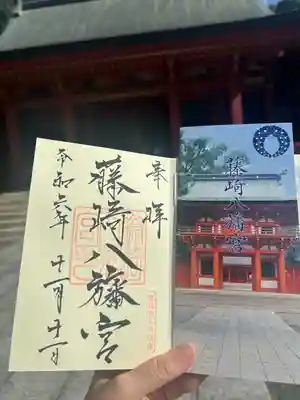 奉拝
藤崎八旛宮
令和六年 十一月十一日
藤崎八旛宮